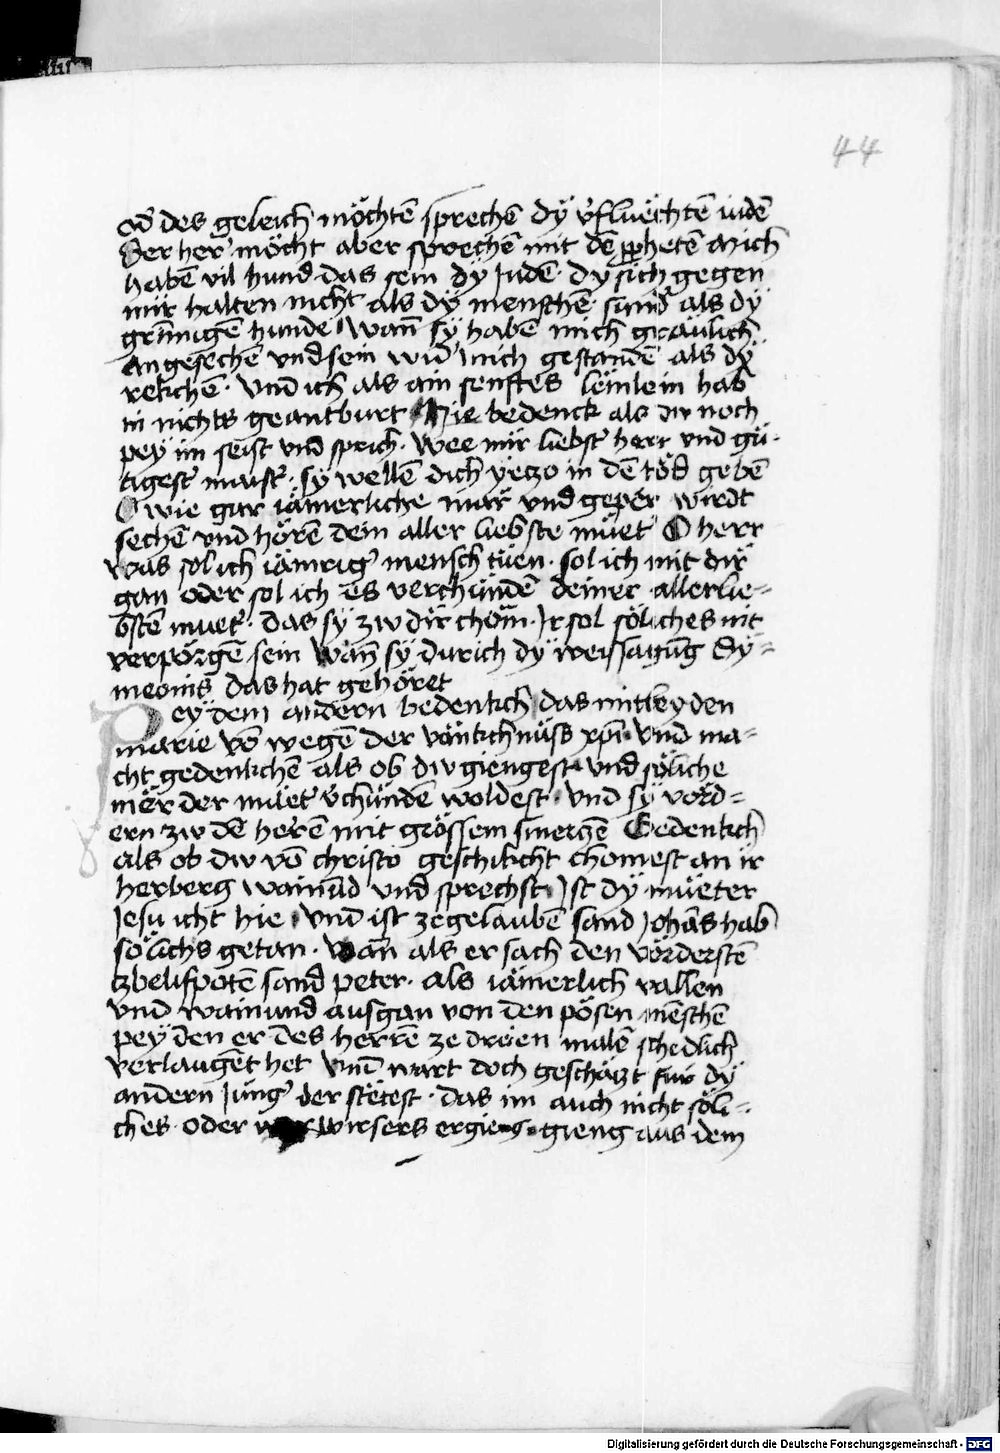 44
od̄ des geleich möchtē sprechē dÿ v̄flüechtē iudē
Der her möcht aber sprechē mit dē ppͪhetē Mich
habē vil hund das sein dy Judē dy sich gegen
mir halten nicht als dÿ menschē sund̄ als dÿ
grīmigē hunde Wan̄ sÿ habē mich gräulich
angesechē vnd sein wid̄ mich gestandē als dÿ
rekchē · vnd ich als ain senftes lēmlein hab
in nichts geantburt Hie bedenck als dw noch
pey im seist vnd sprich · Wee mir liebst̄ herr vnd gü-
tigest̄ maist̄ · sÿ wellē dich yeczo in dē töd gebē
O wie gar iämerliche mär vnd geper wirdt
sechē vnd hörē dein aller liebste müet̄ O herr
was sol ich iämriḡ mensch tüen · sol ich mit dir
gan oder sol ich es verchündē deiner allerlie-
bstē muet̄ · das sÿ zw dir chöm · Ir sol söliches nit
verporgē sein Wan̄ sÿ durich dÿ weissagūg Sÿ-
meonis das hat gehöret
Pey dem andern bedenkch das mitleyden
marie vō wegē der vänkchnüss xp̄i · vnd ma-
cht gedenkchē als ob dw giengest · vnd söliche
mër der müet̄ v̄chündē woldest · vnd sÿ vord-
ern zw dē herē mit grössem smerczē Gedenkch
als ob dw vō christo geschikcht chomest an ir
herberg wainūd vnd sprechst · Ist dÿ müeter
Jesu icht hie · vnd ist zegelaubē sand Johās hab
sölichs getan · Wan̄ als er sach den vörderstē
zbelifpotē sand peter · als iämerlich vallen
vnd wainund ausgan von den pösen mēschē
pey den er des herrē ze dreien malē schedlich
verlaugēt het vnd wart doch geschäczt für dÿ
andern Junḡ der stëtest · das im auch nicht söli-
ches · oder wirsers ergieng · gieng aus dem
Digitalisierung gefördert durch die Deutsche Forschungsgemeinschaft - DFG